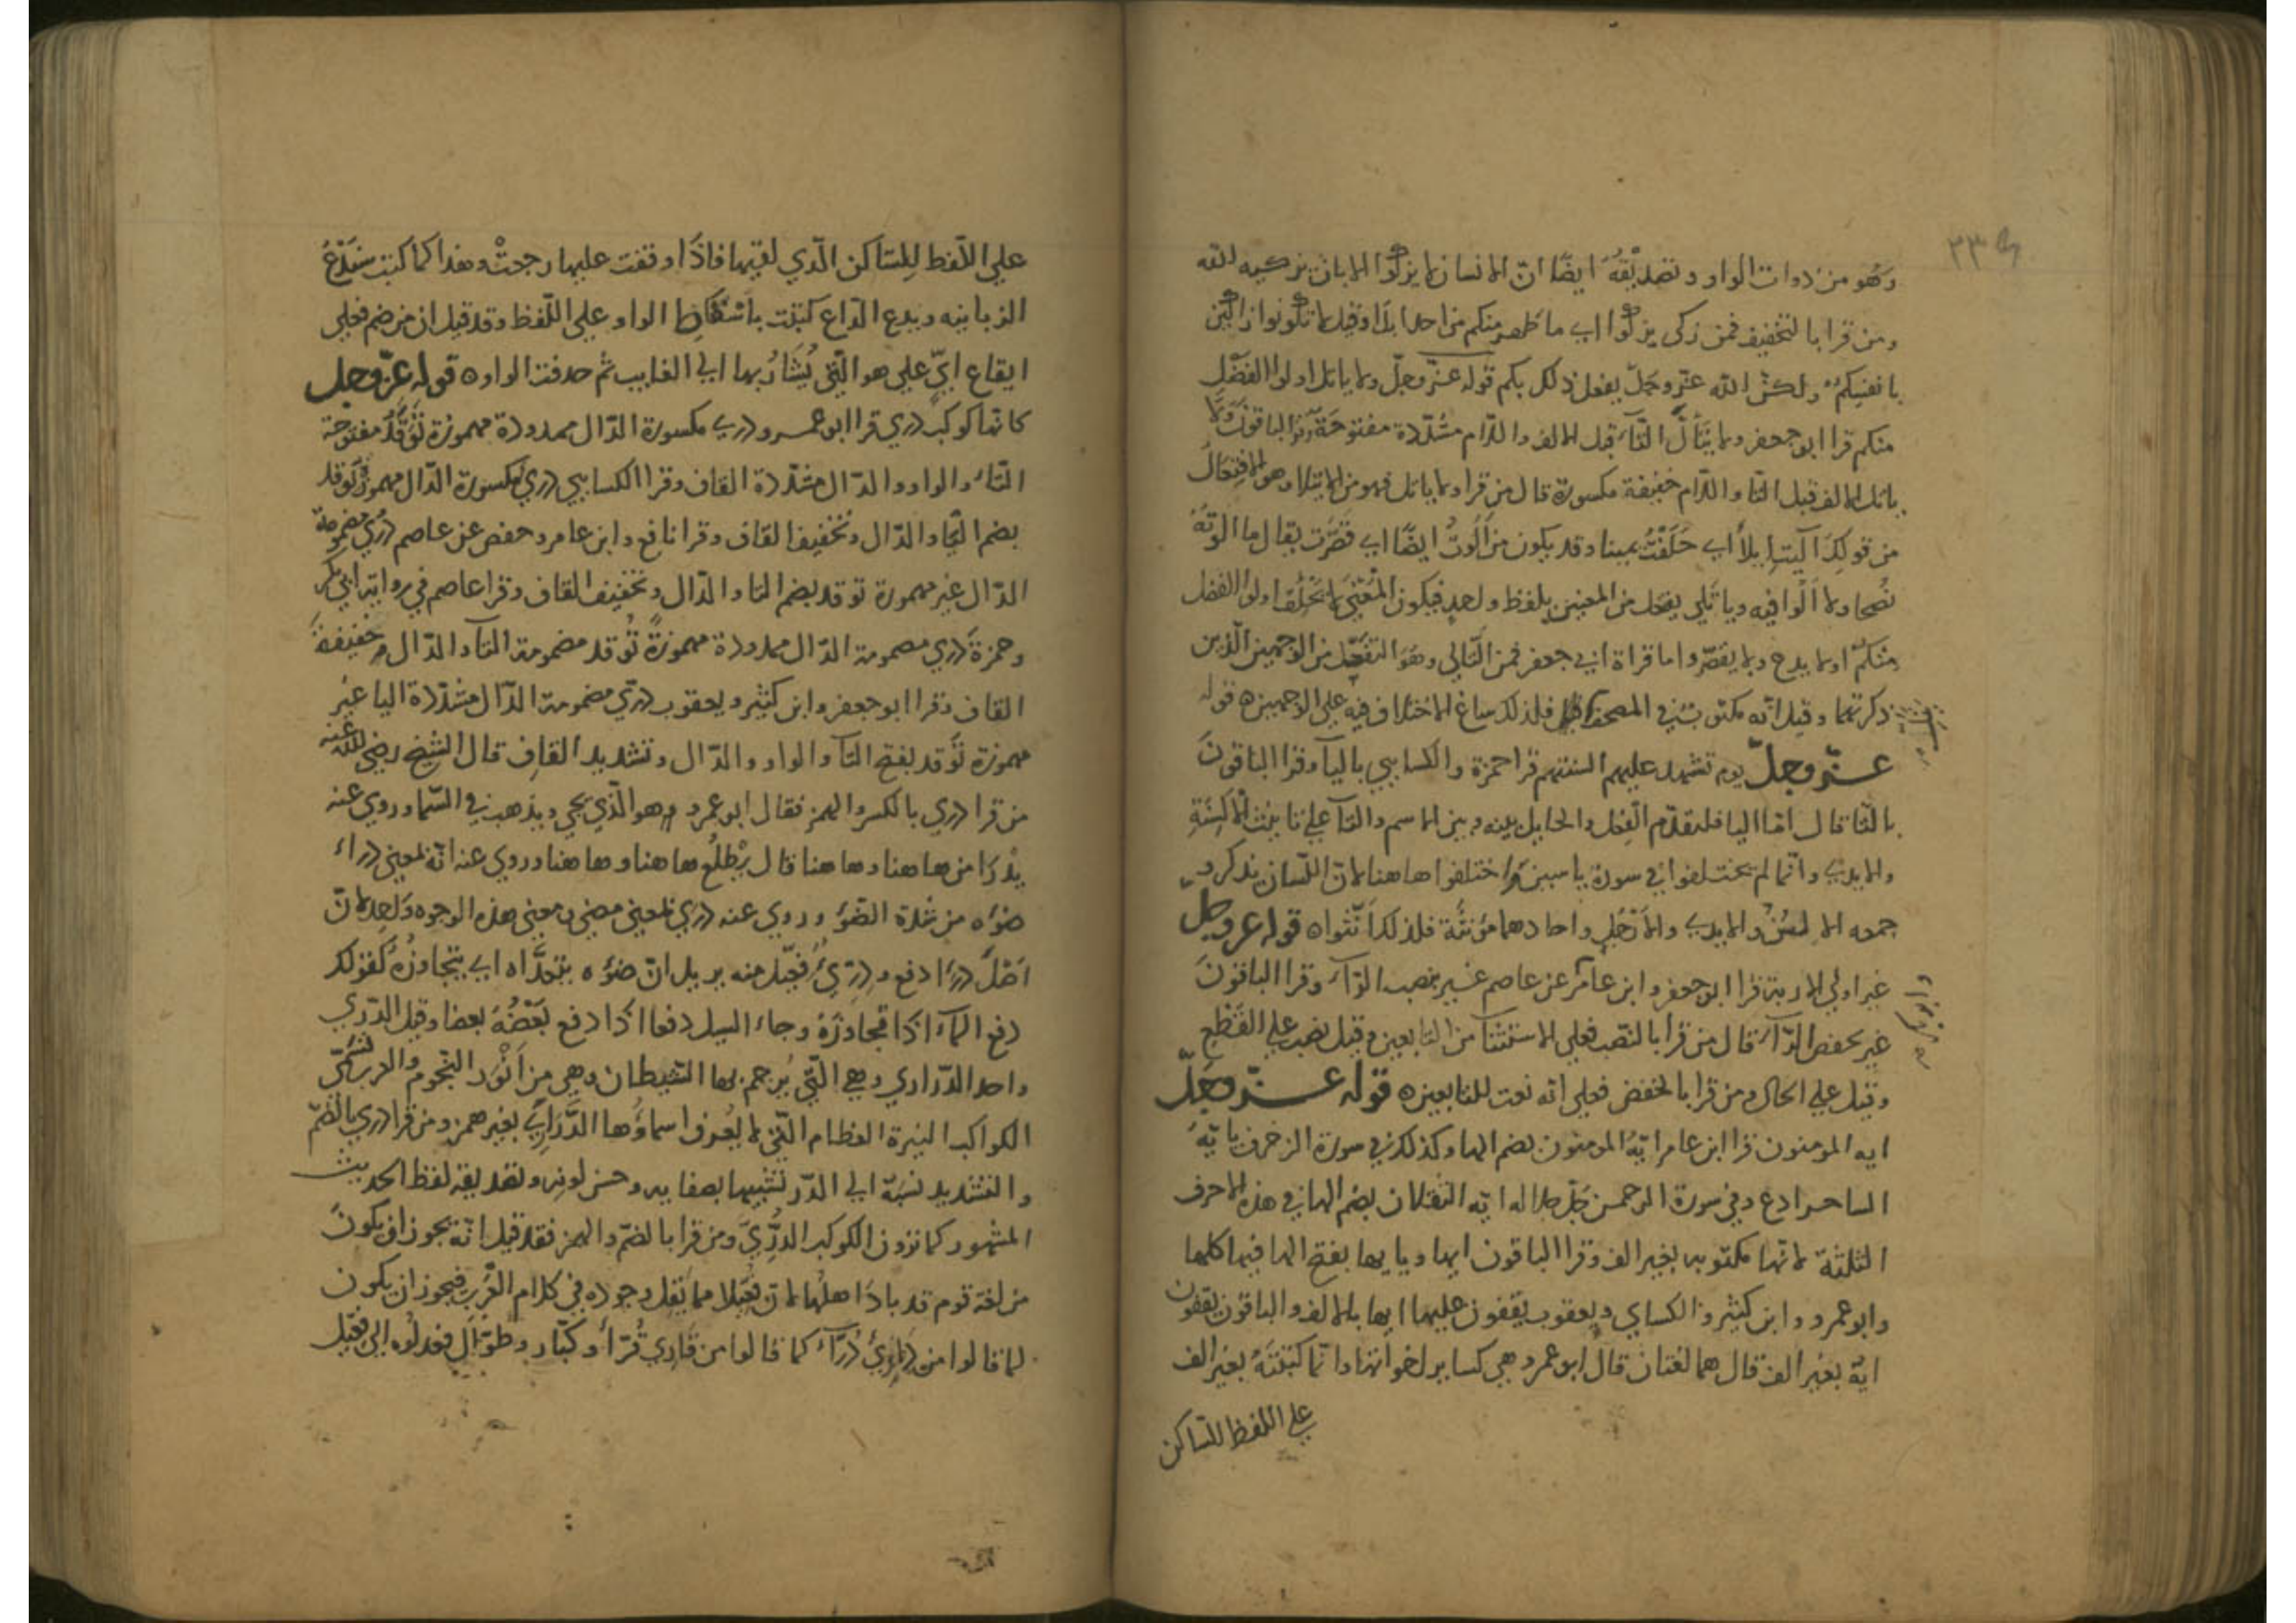 ٢٣٠
وهو من ذوات الواو وتصديقه ايضا ان الانسان لا يزكوا الا بان يزكيه الله
ومن قرا بالتخفيف فمن زكى يزكوا اي ما طهر منكم من احد ابدا وقيل لا تكونوا زاكين
بانفسكم ولكن الله عز وجل يفعل ذلك بكم قوله عز وجل ولا ياتل اولوا الفضل
منكم قرا ابو جعفر ولا يتأل التاء قبل الالف واللام مشددة مفتوحة وقرا الباقون ولا
ياتل الالف قبل التا واللام خفيفة مكسورة قال من قرا ولا ياتل فهو من الايتلا وهو الافتعال
من قولك آليت ايلاً اي حلفت يمينا وقد يكون من ألوت ايضا اي قصرت يقال ما الوته
نصحا ولا آلوا فيه وياتلي يفتعل من المعنيين بلفظ واحد فيكون المعنى لا يحلف اولوا الفضل
منكم اولا يدع ولا يقصر واما قراة ابي جعفر فمن التالي وهو التفعل من الوجهين الذين
ذكرتهما وقيل انه مكتوب في المصحف يتل فلذلك ساغ الاختلاف فيه على الوجهين ه قوله
عز وجل يوم تشهد عليهم السنتهم قرا حمزة والكسايي باليا وقرا الباقون
بالتا قال اما اليا فلتقدم الفعل والحايل بينه وبين الاسم والتا على تانيث الالسنة
والايدي وانما لم يختلفوا في سورة ياسين واختلفوا هاهنا لان اللسان يذكر و
جمعه الالسن والايدي والارجل واحادهما مؤنثة فلذلك انثوا ه قوله عز وجل
غير اولي الاربة قرا ابو جعفر وابن عامر عن عاصم غير بنصب الراء وقرا الباقون
غير بخفض الراء قال من قرا بالنصب فعلى الاستثنا من التابعين وقيل نصب على القطع
وقيل على الحال ومن قرا بالخفض فعلى انه نعت للتابعين ه قوله عز وجل
ايه المومنون قرا ابن عامر ايه المومنون بضم الها وكذلك في سورة الزخرف يا ايه
الساحر ادع وفي سورة الرحمن جل جلاله ايه الثقلان بضم الها في هذه الاحرف
الثلثة لانها مكتوبه بغير الف وقرا الباقون ايها ويا ايها بفتح الها فيها كلها
وابو عمرو وابن كثير والكساي ويعقوب يقفون عليها ايها بالالف والباقون يقفون
ايه بغير الف قال هما لغتان قال ابو عمرو هي كساير اخواتها وانما كتبته بغير الف
على اللفظ للساكن
على اللفظ للساكن الذي لقيها فاذا وقفت عليها رجعت وهذا كما كتبت سندع
الزبانيه ويدع الداع كتبت باسقاط الواو على اللفظ وقد قيل ان من ضم فعلى
ايقاع اي على هو التي يشار بها الى الغايب ثم حذفت الواو ه قوله عز وجل
كانها كوكب دري قرا ابو عمرو دري مكسورة الدال ممدودة مهموزة توقد مفتوحة
التاء والواو والدال مشددة القاف وقرا الكسايي دري مكسورة الدال مهموز توقد
بضم التا والدال وتخفيف القاف وقرا نافع وابن عامر وحفص عن عاصم دري مضمومة
الدال غير مهموزة توقد بضم التا والدال وتخفيف القاف وقرا عاصم في رواية ابي بكر
وحمزة دري مضمومة الدال ممدودة مهموزة توقد مضمومة التا والدال خفيفة
القاف وقرا ابو جعفر وابن كثير ويعقوب دري مضمومة الدال مشددة اليا غير
مهموزة توقد بفتح التا والواو والدال وتشديد القاف قال الشيخ رضي الله عنه
من قرا دري بالكسر والهمز فقال ابو عمرو هو الذي يجي ويذهب في السما وروي عنه
يدرا من هاهنا وهاهنا قال يطلع هاهنا وهاهنا وروي عنه انه بمعنى درا
ضوه من شدة الضو وروي عنه دري بمعنى مضي ومعنى هذه الوجوه واحد لان
اصل درا دفع ودري فعيل منه يريد ان ضوه يتعداه اي يتجاوزه كقولك
دفع الماء اذا تجاوزه وجاء السيل دفعا اذا دفع بعضه بعضا وقيل الدري
واحد الدراري وهي التي يرجم بها الشيطان وهي من انور النجوم والعرب تسمي
الكواكب النيرة العظام التي لا يعرف اسماؤها الدراري بغير همز ومن قرا دري بالضم
والتشديد نسبه الى الدر تشبيها بصفايه وحسن لونه وتصديقه لفظ الحديث
المشهور كما ترون الكوكب الدري ومن قرا بالضم والهمز فقد قيل انه يجوز ان يكون
من لغة قوم قد باد اهلها لان فعيلا مما يقل وجوده في كلام العرب فيجوز ان يكون
لما قالوا من دري درآء كما قالوا من قاري قرأ وكبار وطوال فعدلوه الى فعيل